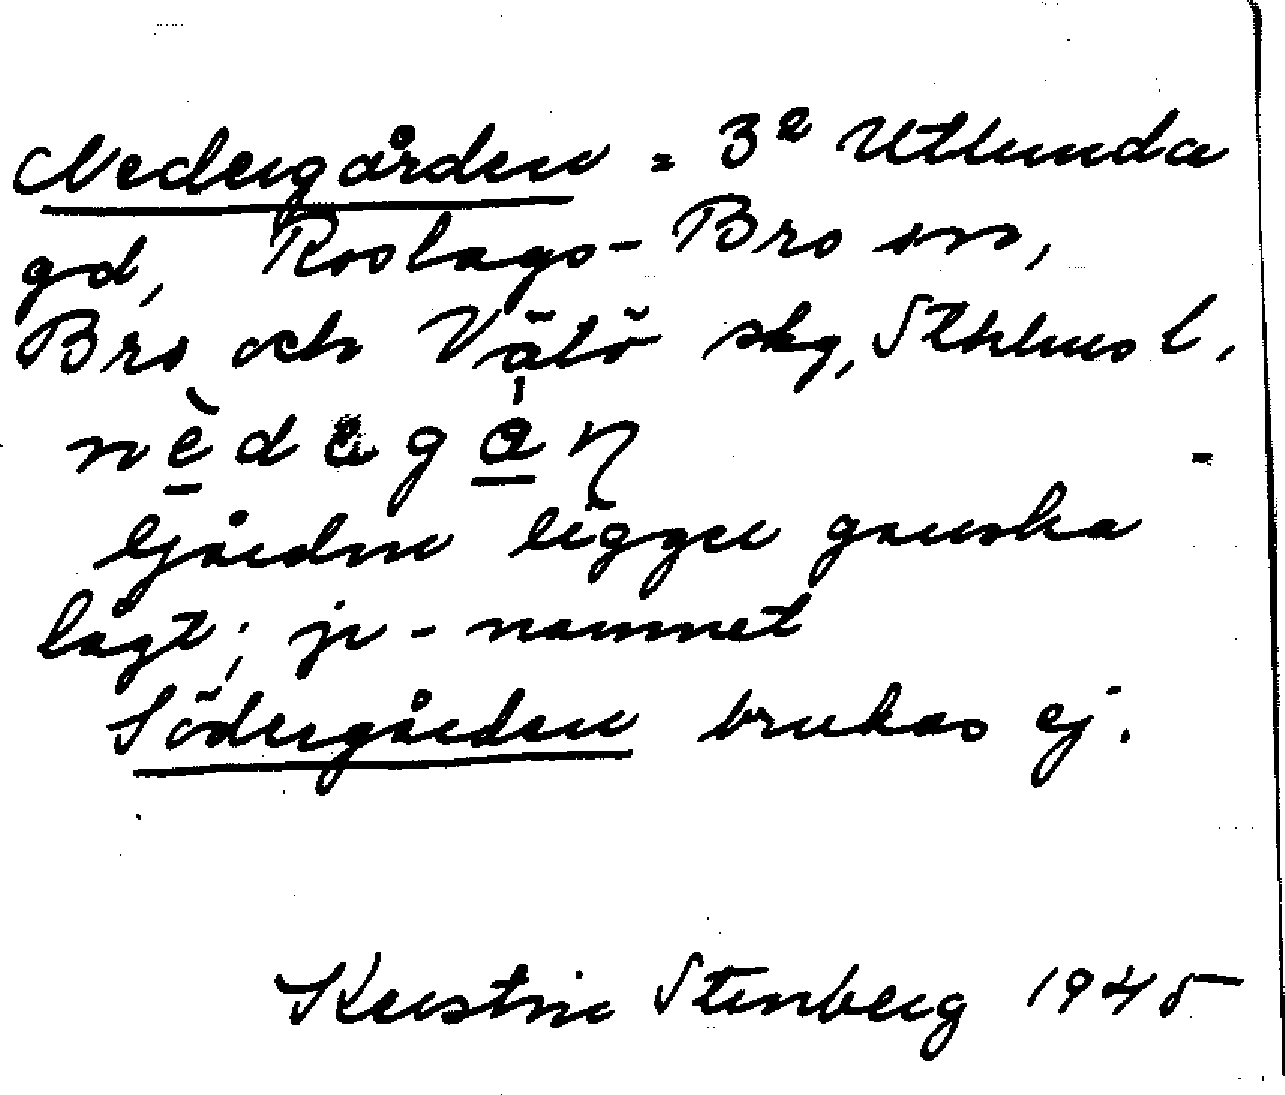 Nedergården = 3ª Utlunda
gd, Roslags-Bro sn,
Bro och Vätö skg, Sthlms l.
nèdegå̱ṇ
Gården ligger ganska
lågt; jr-namnet
Södergården brukas ej.
Kerstin Stenberg 1945